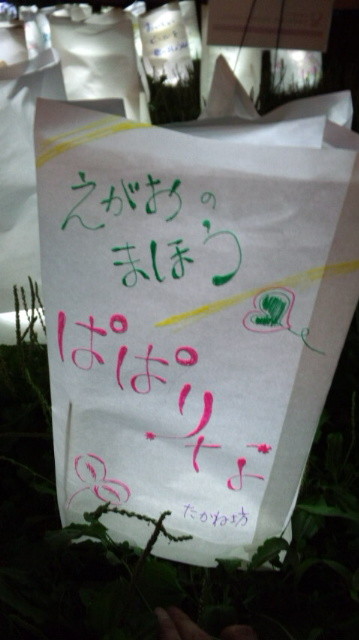 えがおの
まほう
ぱぱりな
たかね坊